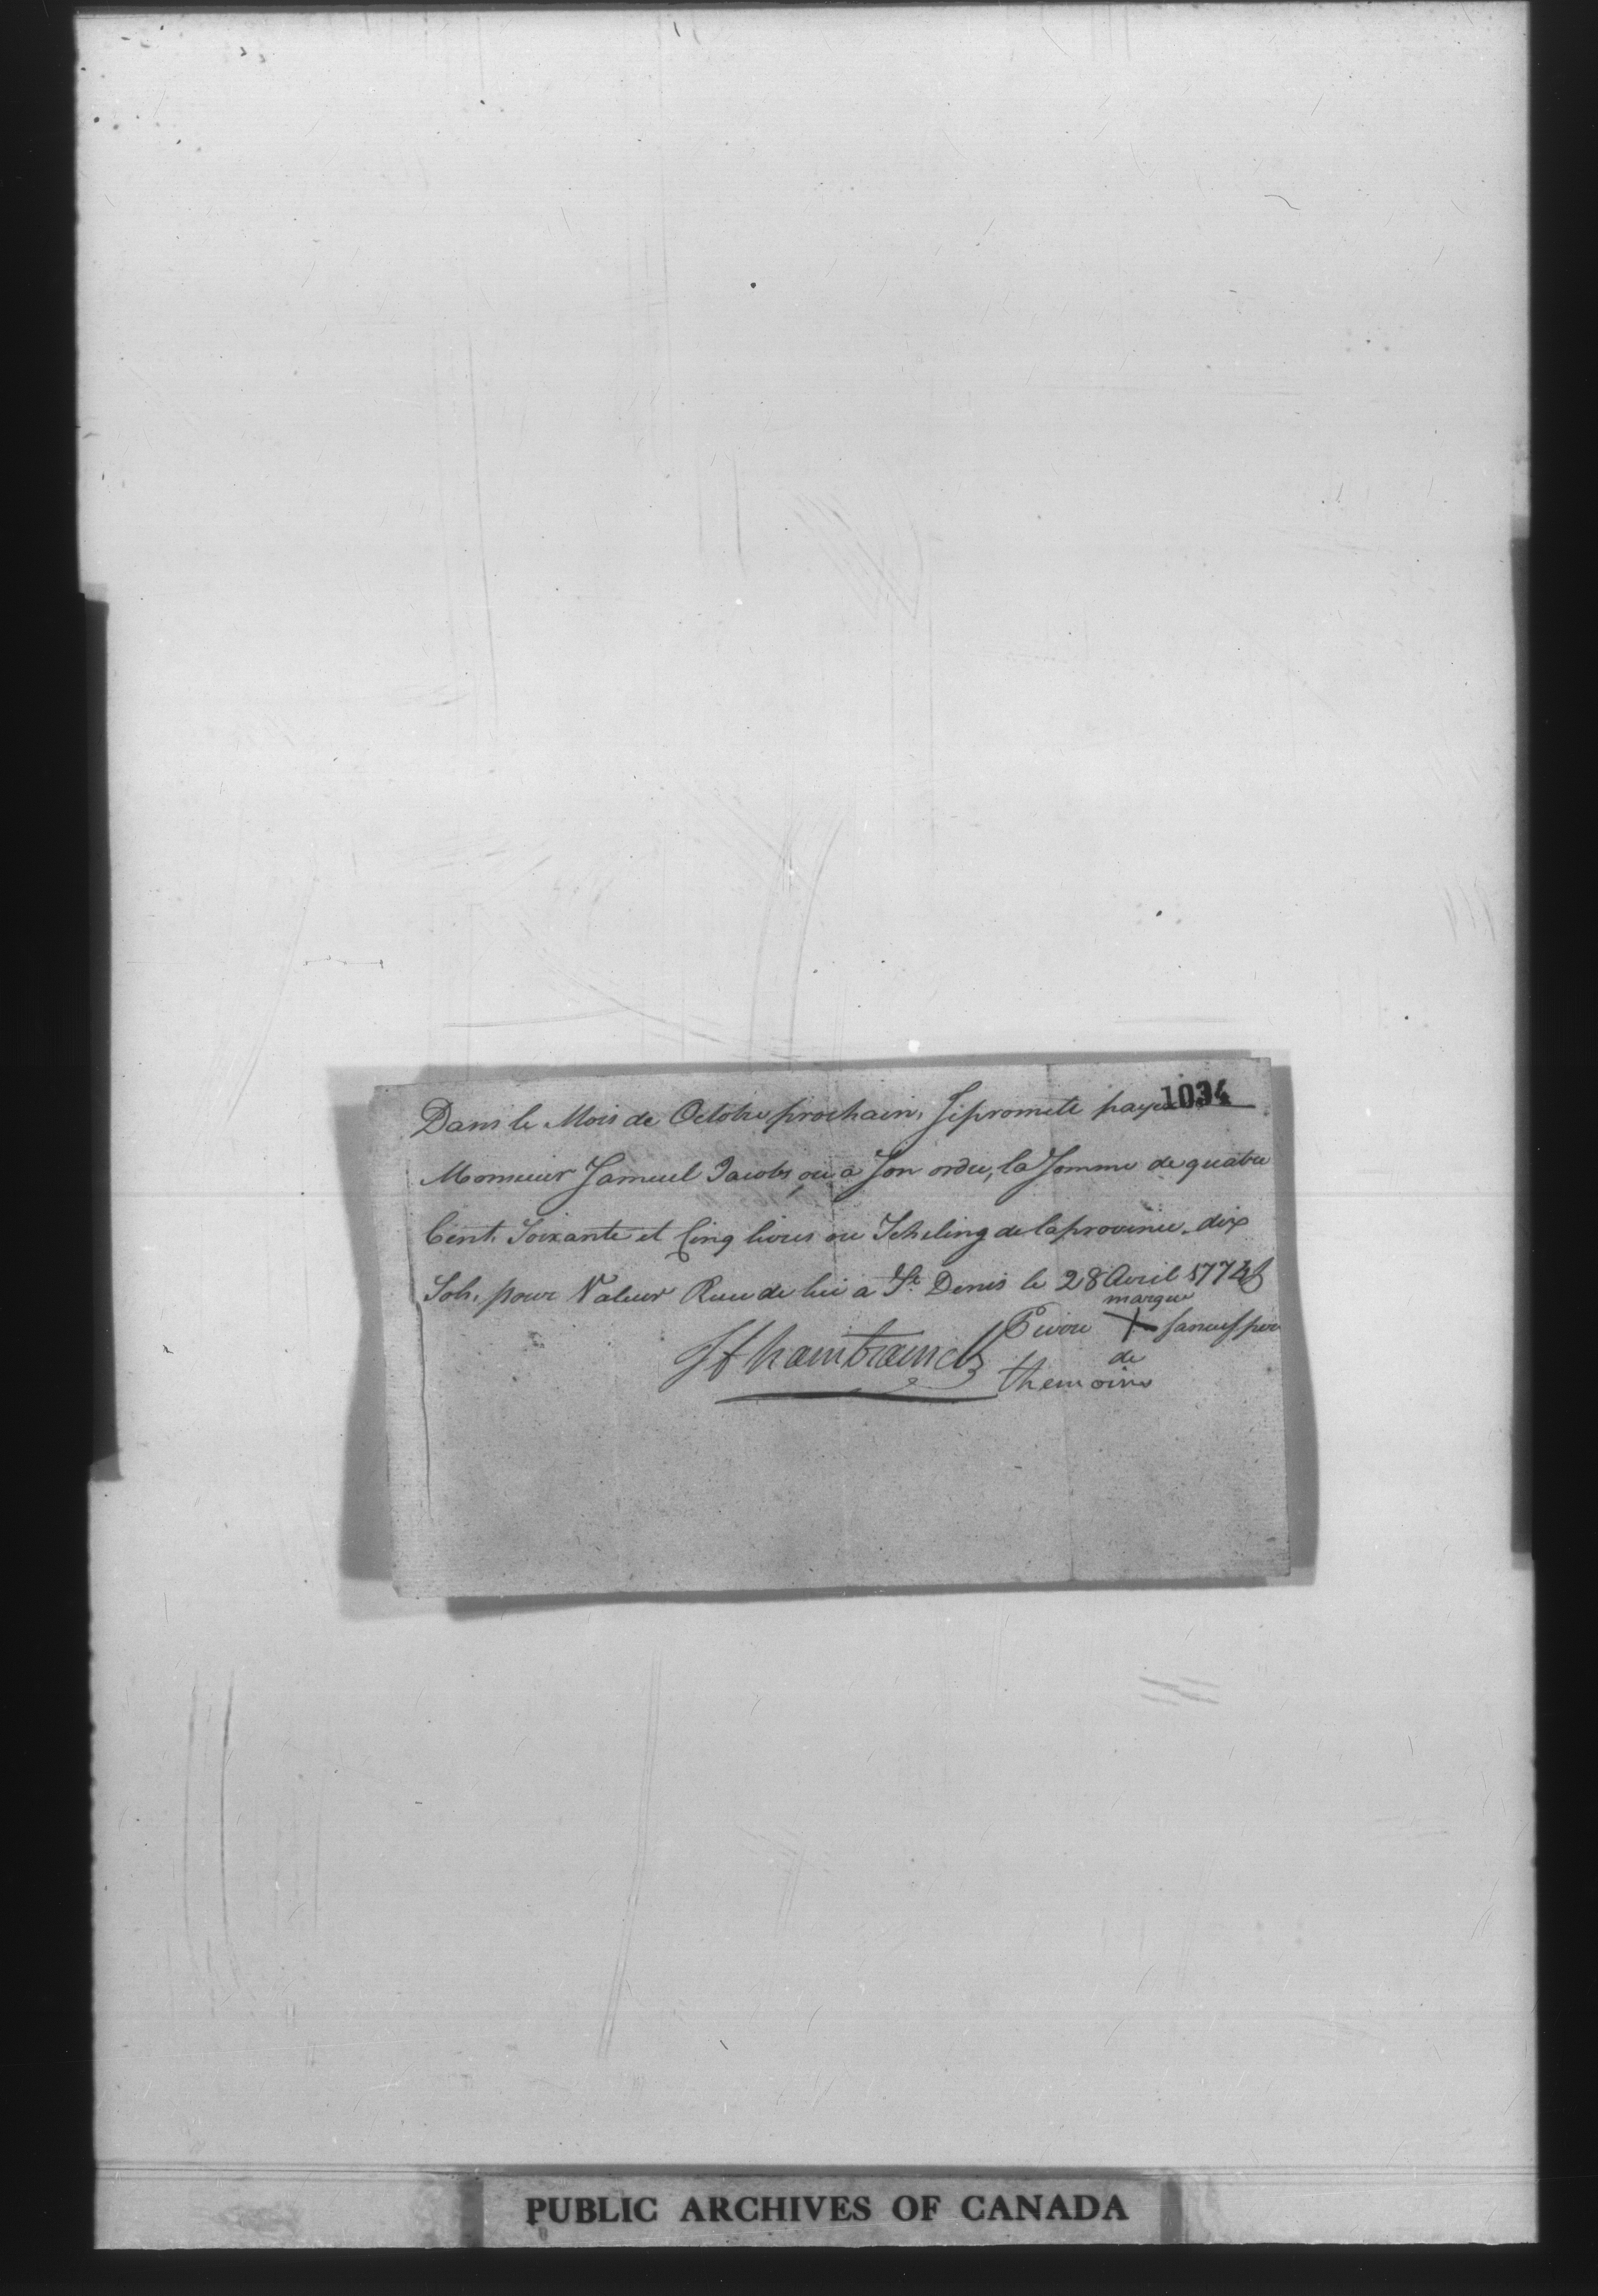 1034
Dans le Mois de Octobre prochain, Je promete payer
Monsieur Samuel Jacobs ou a Son ordre, la Somme de quatre
Cent. Soixante et Cinq livres ou Scheling de la province dix
Sols, pour Valeur Recu de lui a St. Denis le 28 Avril 1774
marque
Pierre X
de
themoins
PUBLIC ARCHIVES OF CANADA